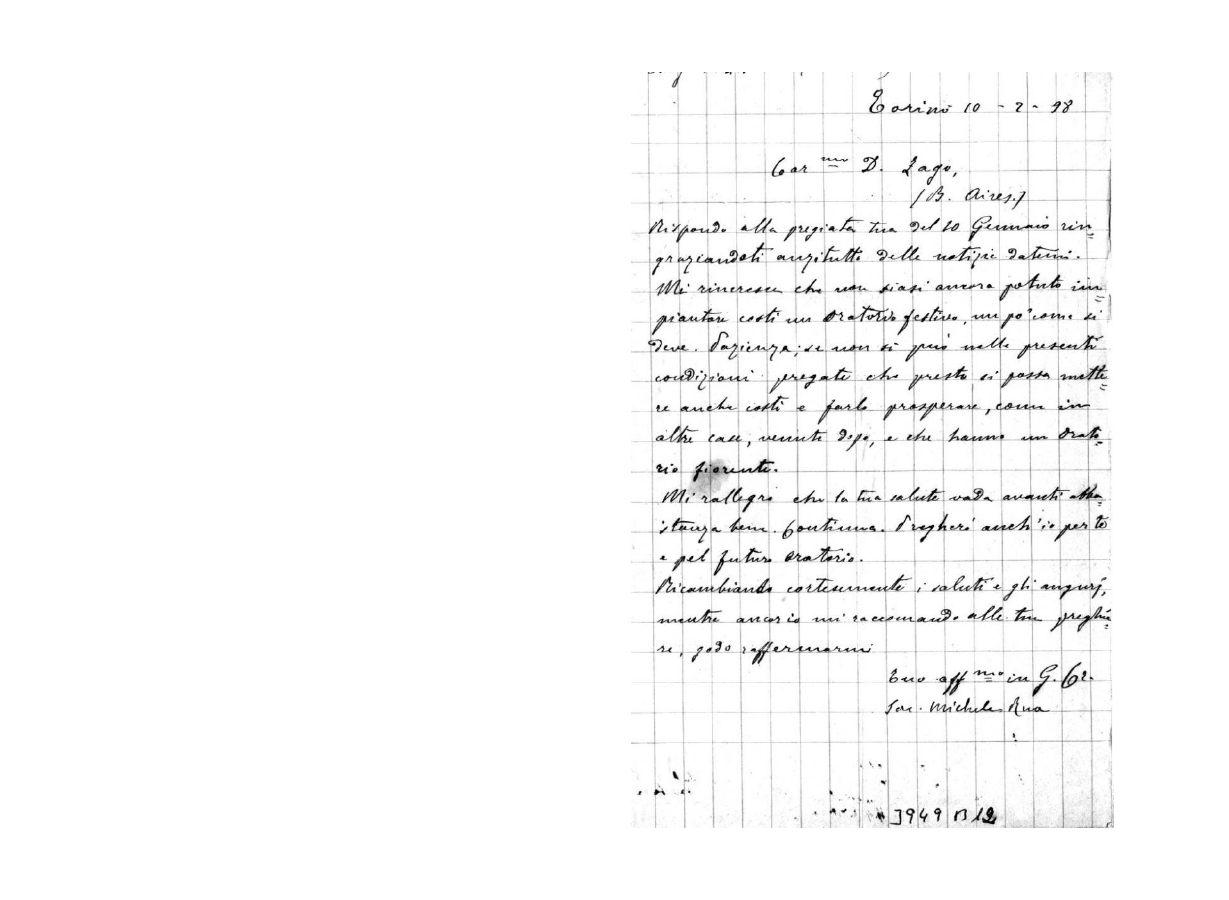 Torino 10 - 2 - 98
Car mo D. Lago,
(B. Aires.)
Rispondo alla pregiata tua del 10 Gennaio rin=
graziandoti anzitutto delle notizie datemi.
Mi rincresce che non siasi ancora potuto im=
piantare costì un Oratorio festivo, un po' come si
deve. Pazienza; se non si può nelle presenti
condizioni pregate che presto si possa mette=
re anche costì e farlo prosperare, come in
altre case, venute dopo, e che hanno un Orato=
rio fiorente.
Mi rallegro che la tua salute vada avanti abba=
stanza bene. Continua. Pregherò anch'io per te
e pel futuro Oratorio.
Ricambiando cortesemente i saluti e gli augurj,
mentre ancor io mi raccomando alle tue preghie=
re, godo raffermarmi
Tuo aff mo in G. Cr.
Sac. Michele Rua
3949 B 12